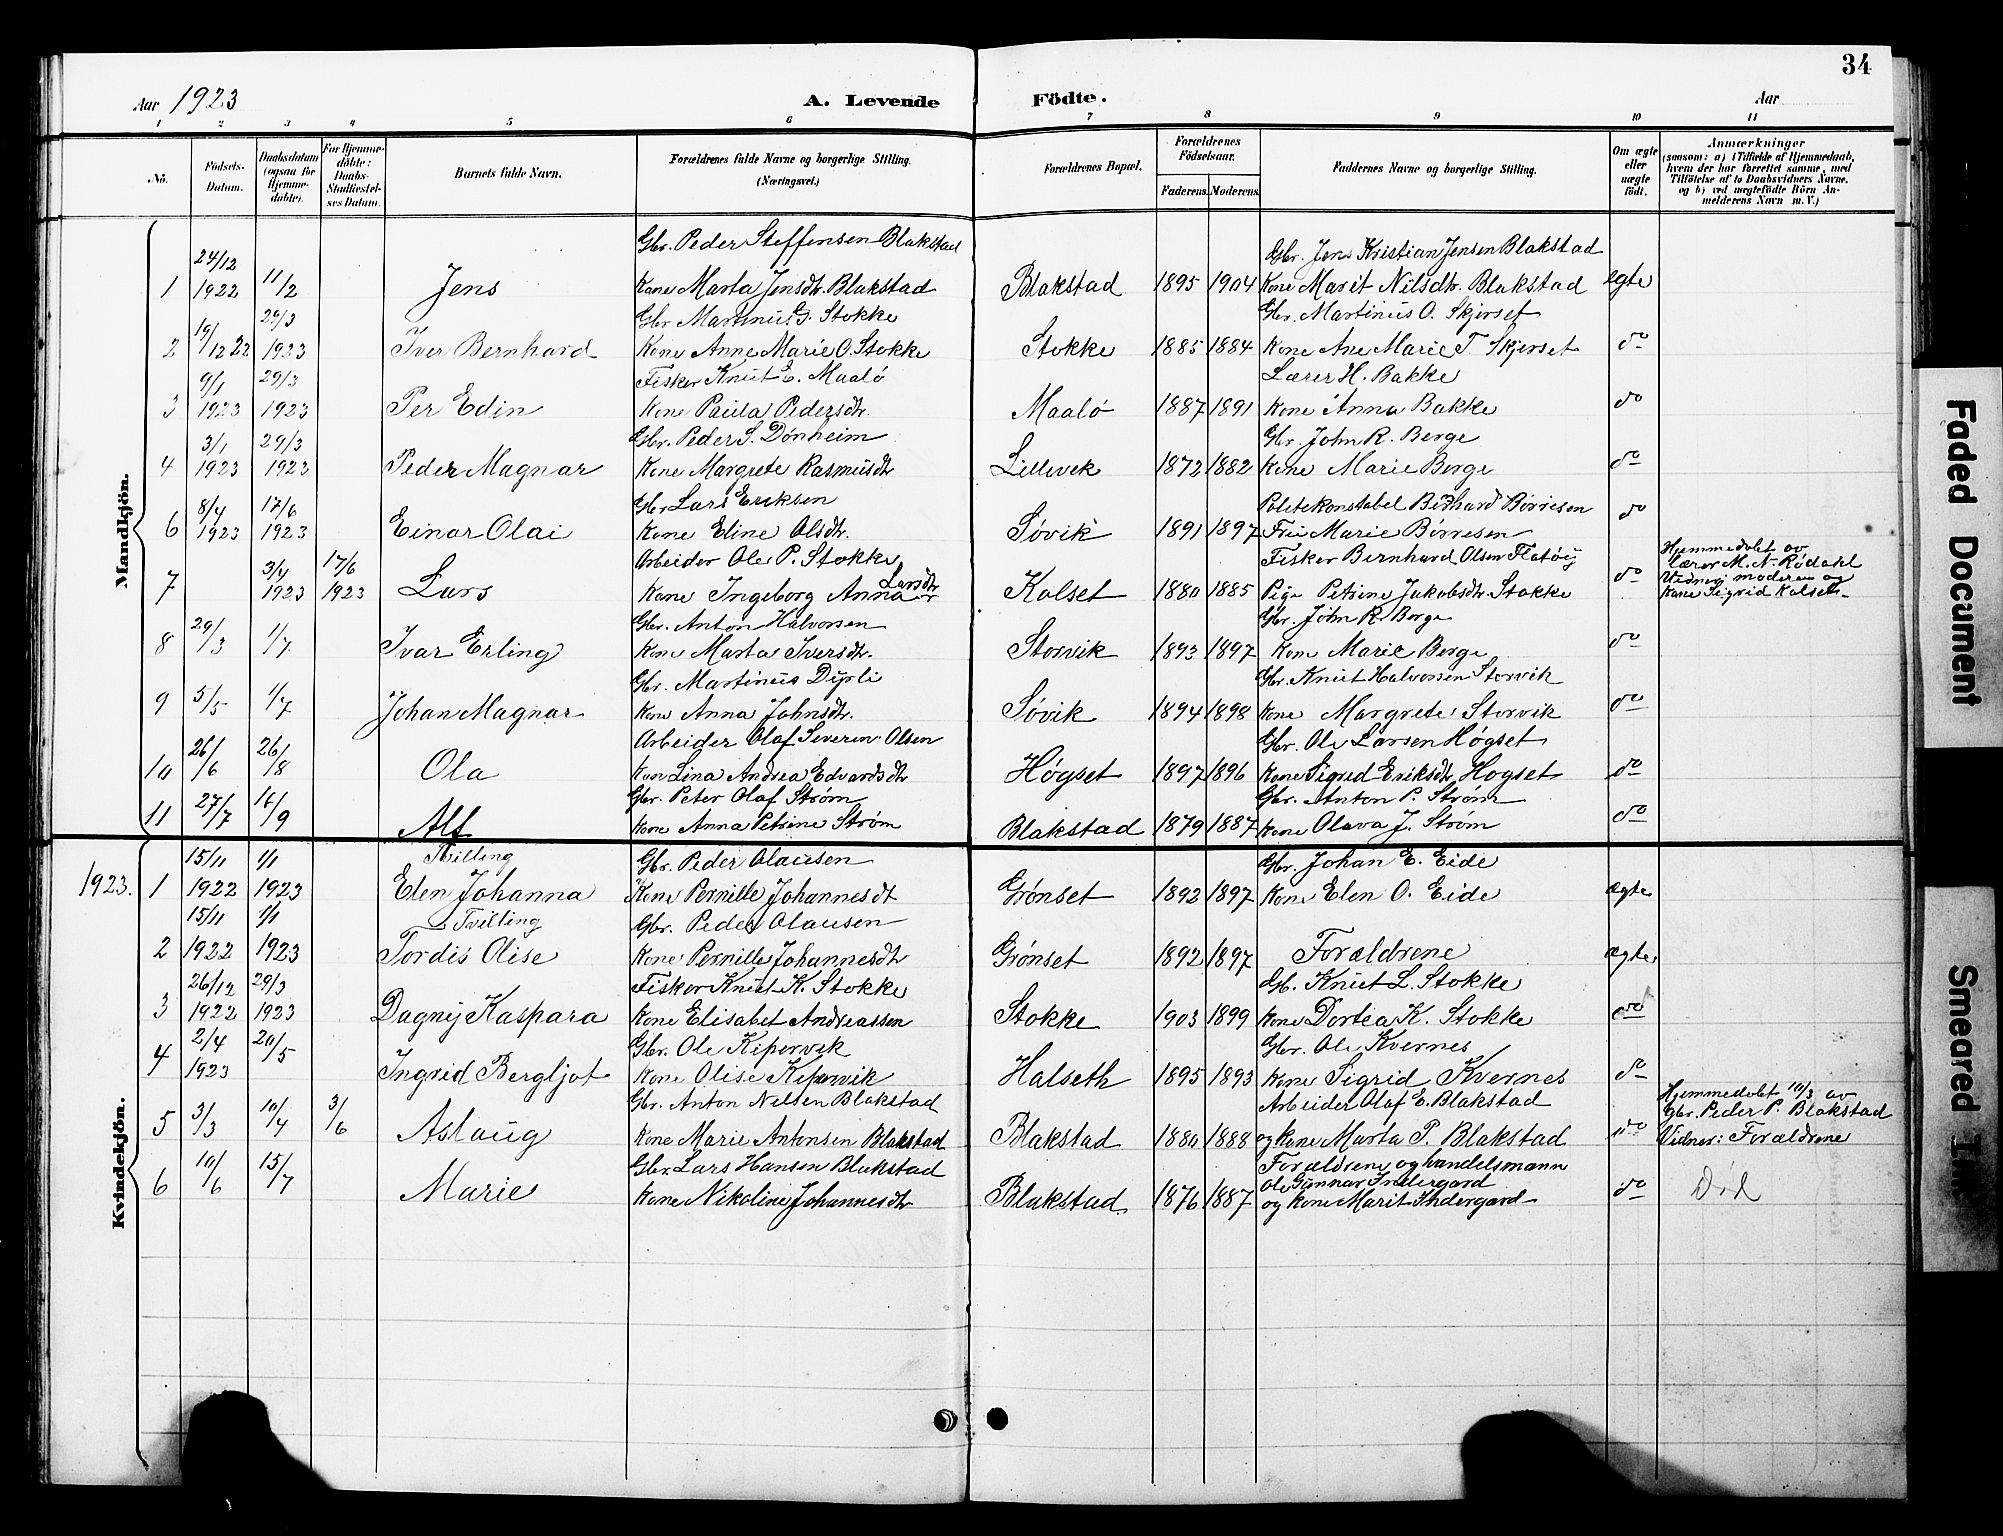 34
Aar 1923 A. Levende Födte. Aar
1 2 3 4 5 6 7 8 9 10 11
No. Födsels-Datum. Daabsdatum (ogsaa for Hjemme-döbte). For Hjemme-döbte: Daabs-Stadfæstel-ses Datum. Barnets fulde Navn. Forældrenes fulde Navne og borgerlige Stilling. (Næringsvei.) Forældrenes Bopæl. Forældrenes Födselsaar. Faderens. Moderens. Faddernes Navne og borgerlige Stilling. Om ægte eller uægte födt. Anmærkninger (saasom: a) i Tilfælde af Hjemmedaab, hvem der har forrettet samme, med Tilföielse af to Daabsvidners Navne, og b) ved uægtefödte Börn An-melderens Navn m. V.)
Mandkjön.
Gbr. Peder Steffensen Blakstad Gbr. Jens Kristian Jensen Blakstad
1 24/12 1922 11/2 Jens Kone Marta Jensdtr. Blakstad Blakstad 1895 1904 Kone Marit Nilsdtr. Blakstad egte
Gbr. Martinus G. Stokke Gbr. Martinus O. Skjerset
2 19/12 22 29/3 1923 Iver Bernhard Kone Anne Marie O. Stokke Stokke 1885 1884 Kone Ane Marie T. Skjerset do
Fisker Knut E. Maalö Lærer H. Bakke
3 9/1 1923 29/3 1923 Per Edin Kone Paula Pedersdtr. Maalö 1887 1891 Kone Anna Bakke do
Gbr. Peder S. Dønheim Gbr. John R. Berge
4 3/1 1923 29/3 1923 Peder Magnar Kone Margrete Rasmusdtr Lillevik 1872 1882 Kone Marie Berge do
Gbr Lars Eriksen Politekonstabel Bernhard Børresen
6 8/4 1923 17/6 1923 Einar Olai Kone Eline Olsdtr. Søvik 1891 1897 Fru Marie Børresen do
Arbeider Ole P. Stokke Fisker Bernhard Olsen Flatöy Hjemmedøbt av
7 3/4 1923 17/6 1923 Lars Kone Ingeborg Anna Larsdtr Kalset 1880 1885 Pige Petrine Jakobsdtr. Stokke do lærer M. N. Rödahl
moderen og
Kone Sigrid Kalseth
Gbr. Anton Halvorsen Gbr. John R. Berge
8 29/3 1/7 Ivar Erling Kone Marta Iversdtr. Storvik 1893 1897 Kone Marie Berge do
Gbr. Martinus Dyrli Gbr. Knut Halvorsen Storvik
9 5/5 1/7 Johan Magnar Kone Anna Johnsdtr. Søvik 1894 1898 Kone Margrete Storvik do
Arbeider Olaf Severin Olsen Gbr. Ole Larsen Høgset
10 26/6 26/8 Ola Kone Lina Andrea Edvardsdtr Høgset 1897 1896 Kone Sigrid Eriksdtr. Hogset do
Gbr. Peter Olaf Strøm Gbr. Anton P. Strøm
11 27/7 16/9 Alf Kone Anna Petrine Strøm Blakstad 1879 1887 Kone Olava J. Strøm do
Kvindekjön.
Tvilling Gbr. Peder Olausen Gbr. Johan E. Eide
1923. 1 15/11 1922 1/1 1923 Elen Johanna Kone Pernille Johannesdt Grønset 1892 1897 Kone Elen O. Eide ægte
Tvilling Gbr. Peder Olausen
2 15/11 1922 1/1 1923 Tordis Olise Kone Pernille Johannesdt Grønset 1892 1897 Forældrene ægte
Fisker Knut K. Stokke Gb. Knut L. Stokke
3 26/12 1922 29/3 1923 Dagny Kaspara Kone Elisabet Andreassen Stokke 1903 1899 Kone Dortea K. Stokke do
Gbr. Ole Kipervik Gbr. Ole Kvernes
4 2/4 1923 20/5 Ingrid Bergljot Kone Olise Kipervik Halseth 1895 1893 Kone Sigrid Kvernes do
Gbr. Anton Nelsen Blakstad Arbeider Olaf E. Blakstad Hjemmedøbt 10/3 av
Gbr. Peder P. Blakstad
5 3/3 10/4 3/6 Aslaug Kone Marie Antonsen Blakstad Blakstad 1880 1888 og Kone Marta P. Blakstad do Vidner: Forældrene
Gbr. Lars Hansen Blakstad Forældrene og handelsmann
Ole Gunnar Indergard
6 10/6 15/7 Marie Kone Nikoline Johannesdtr Blakstad 1876 1887 og Kone Marit Indergard do Död
Faded Document
Smeared Ink